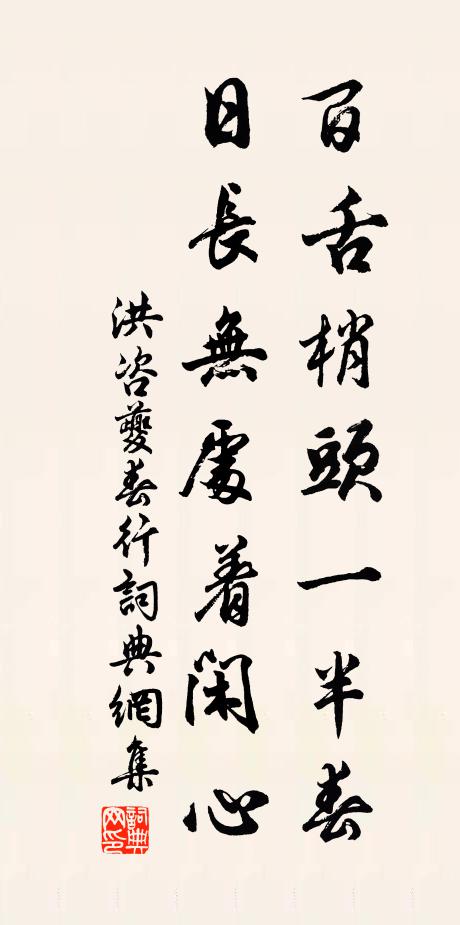 百舌梢頭一半春
日長無處着閑心
洪咨夔春行詞典網集
詞典网印